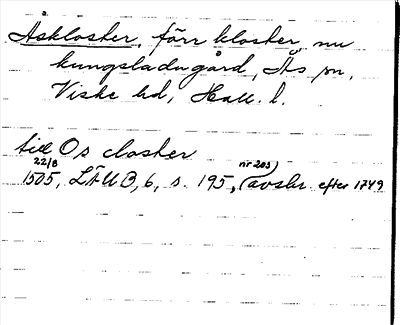 Åskloster, förr kloster, nu
kungsladugård, Ås sn,
Viske hd, Hall. l.
till Os closter
22/8 nr 203
1505, LÄUB, 6, s. 195, (avskr. efter 1749)